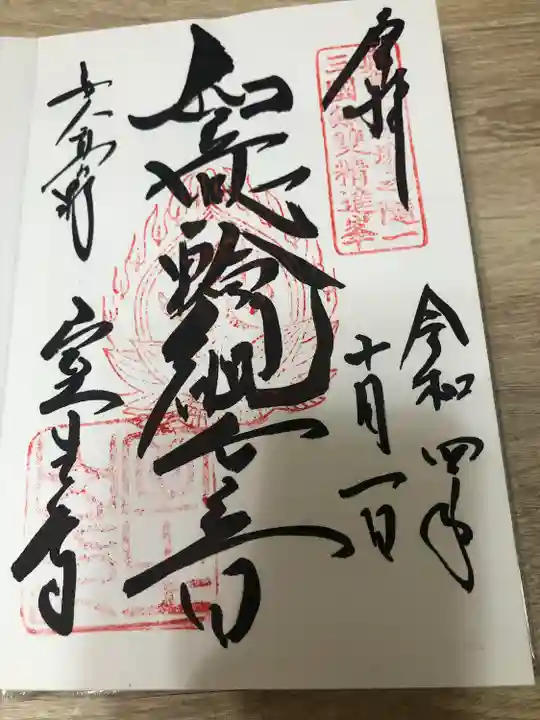 奉拝
令和四年
十月一日
如意輪観世音
女人高野
室生寺
三國無雙精進峯